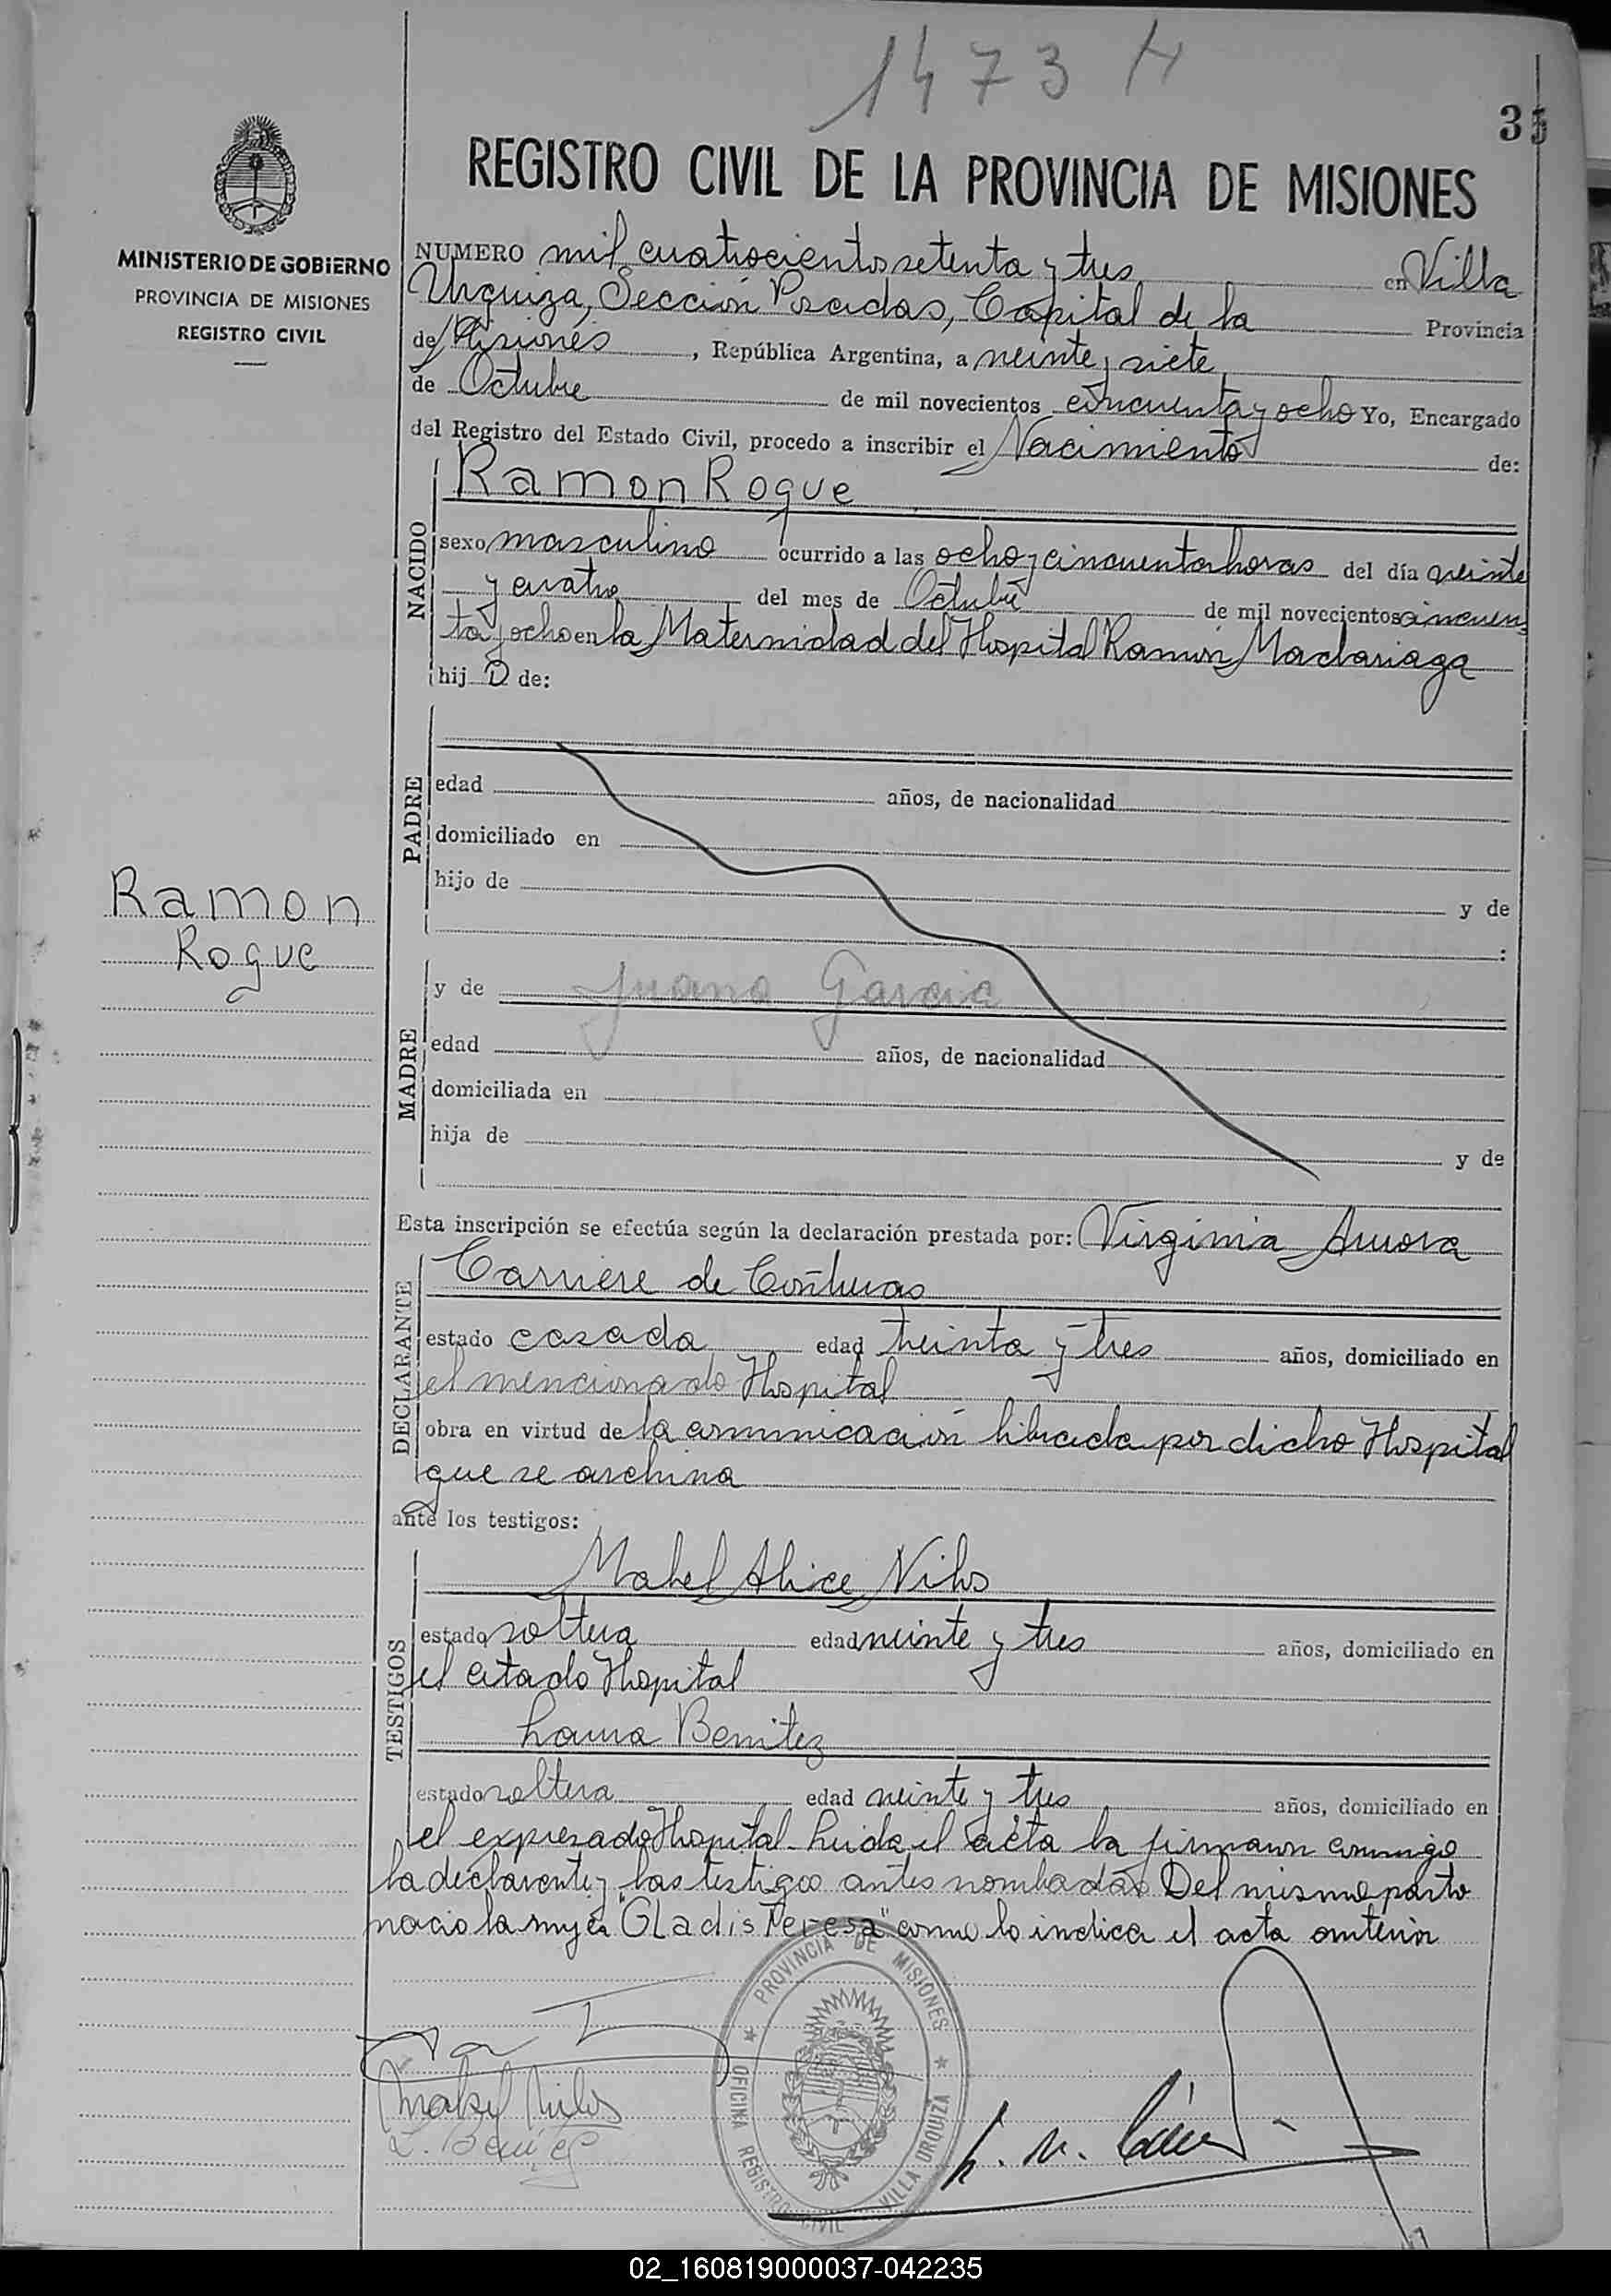 1473 H
35
MINISTERIO DE GOBIERNO
PROVINCIA DE MISIONES
REGISTRO CIVIL
REGISTRO CIVIL DE LA PROVINCIA DE MISIONES
NUMERO mil cuatrocientos setenta y tres en Villa
Urquiza, Sección Posadas, Capital de la Provincia
de Misiones, República Argentina, a veinte y siete
de Octubre de mil novecientos cincuenta y ocho Yo, Encargado
del Registro del Estado Civil, procedo a inscribir el Nacimiento de:
NACIDO
Ramon Roque
sexo masculino ocurrido a las ocho y cincuenta horas del día veinte
y cuatro del mes de Octubre de mil novecientos cincuen
ta y ocho en la Maternidad del Hospital Ramón Madariaga
hij o de:
PADRE
edad años, de nacionalidad
domiciliado en
hijo de y de
:
Ramon
Roque
MADRE
y de Juana Garcia
edad años, de nacionalidad
domiciliada en
hija de y de
Esta inscripción se efectúa según la declaración prestada por: Virginia
DECLARANTE
Carriere de
estado casada edad treinta y tres años, domiciliado en
el mencionado Hospital
obra en virtud de la comunicación librada por dicho Hospital
que se archiva
ante los testigos:
TESTIGOS
Mabel Alice Vilos
estado soltera edad veinte y tres años, domiciliado en
el citado Hospital
Laura Benitez
estado soltera edad veinte y tres años, domiciliado en
el expresado Hospital. Leida el acta la firmaron conmigo
la declarante y las testigos antes nombradas Del mismo parto
nacio la mujer "Gladis Teresa" como lo indica el acta anterior
PROVINCIA DE MISIONES
OFICINA REGISTRO CIVIL VILLA URQUIZA
Mabel Vilos
L. Benitez
02_160819000037-042235